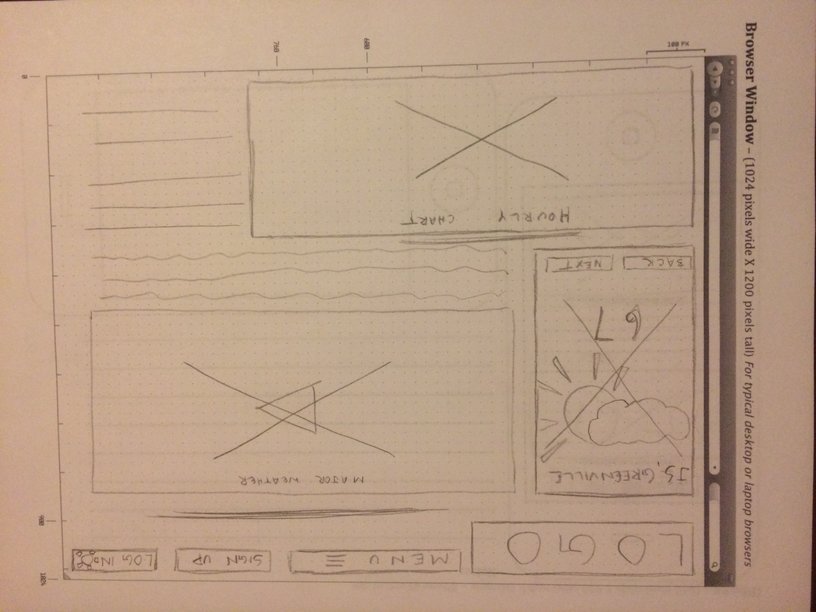 Browser Window – (1024 pixels wide X 1200 pixels tall) For typical desktop or laptop browsers
LOGO
MENU
SIGN UP
LOG IN
GREENVILLE
67
BACK
NEXT
MAJOR WEATHER
HOURLY CHART
100 PX
600
760